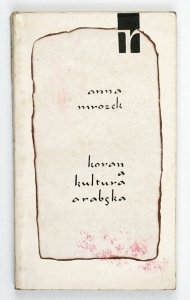 r
anna
mrozek
koran
a
kultura
arabska